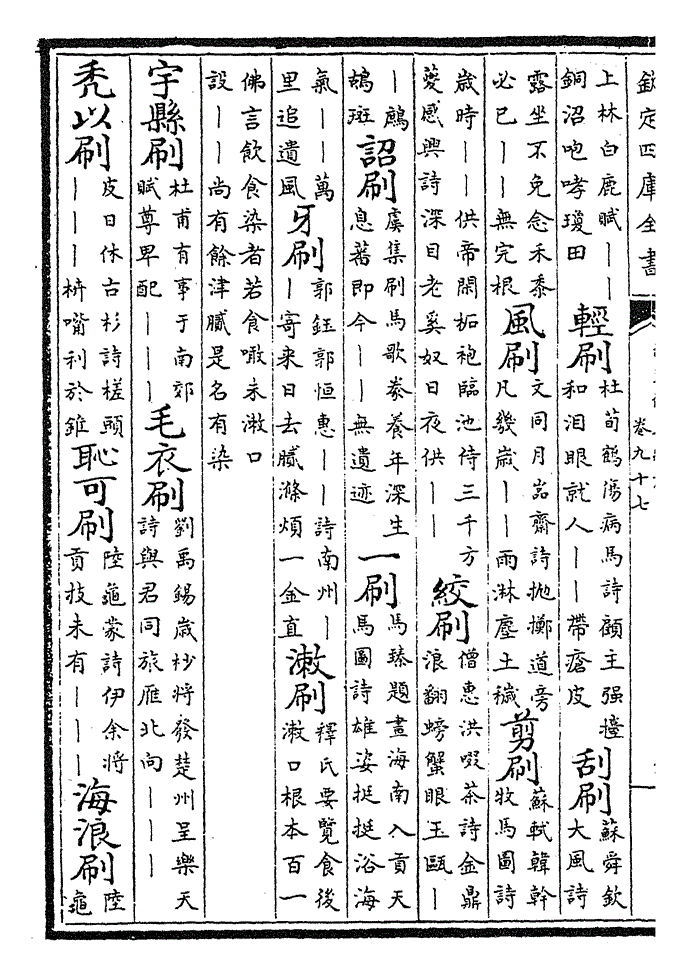 欽定四庫全書
卷九十七
上林白鹿賦——
銅沼咆哮瓊田
輕刷
杜荀鶴傷病馬詩顧主强擡
和泪眼就人——帶瘡皮
刮刷
蘇舜欽
大風詩
露坐不免念禾黍
必已——無完根
風刷
文同月嵓齋詩拋擲道旁
凡幾歲——雨淋塵土穢
剪刷
蘇軾韓幹
牧馬圖詩
歲時——供帝閑柘袍臨池侍三千方
夔感興詩深目老奚奴日夜供——
絞刷
僧惠洪啜茶詩金鼎
浪翻螃蟹眼玉甌—
—鷓
鴣斑
詔刷
虞集刷馬歌豢養年深生
息蕃即今——無遺迹
一刷
馬臻題畫海南入貢天
馬圖詩雄姿挺挺浴海
氣——萬
里追遺風
牙刷
郭鈺郭恒惠——詩南州—
—寄来日去膩滌煩一金直
漱刷
釋氏要覽食後
漱口根本百一
佛言飲食染者若食噉未漱口
設——尚有餘津膩是名有染
宇縣刷
杜甫有事于南郊
賦尊卑配———
毛衣刷
劉禹錫歲杪將發楚州呈樂天
詩與君同旅雁北向———
禿以刷
皮日休古杉詩槎頭
———枿嘴利於錐
恥可刷
陸龜蒙詩伊余將
貢技未有———
海浪刷
陸
龜